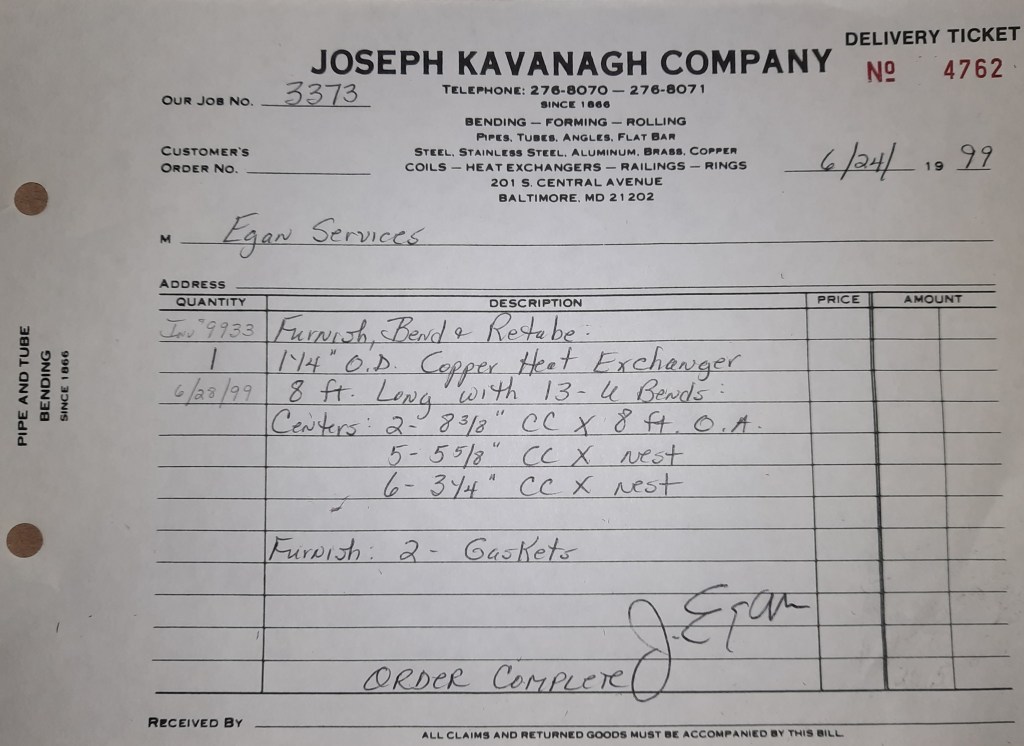 DELIVERY TICKET
JOSEPH KAVANAGH COMPANY
Nº 4762
TELEPHONE: 276-8070 — 276-8071
OUR JOB NO. 3373
SINCE 1866
BENDING — FORMING — ROLLING
PIPES, TUBES, ANGLES, FLAT BAR
CUSTOMER'S
ORDER NO.
STEEL, STAINLESS STEEL, ALUMINUM, BRASS, COPPER
COILS — HEAT EXCHANGERS — RAILINGS — RINGS
6/24/ 19 99
201 S. CENTRAL AVENUE
BALTIMORE, MD 21202
M Egan Services
ADDRESS
QUANTITY DESCRIPTION PRICE AMOUNT
Inv # 9933 Furnish, Bend & Retube:
1 1 1/4" O.D. Copper Heat Exchanger
6/28/99 8 ft. Long with 13- U Bends:
Centers: 2- 8 3/8" CC X 8 ft. O.A.
5- 5 5/8" CC X Nest
6- 3 1/4" CC X Nest
Furnish: 2 - Gaskets
J. Egan
ORDER COMPLETE
RECEIVED BY
ALL CLAIMS AND RETURNED GOODS MUST BE ACCOMPANIED BY THIS BILL
PIPE AND TUBE
BENDING
SINCE 1866